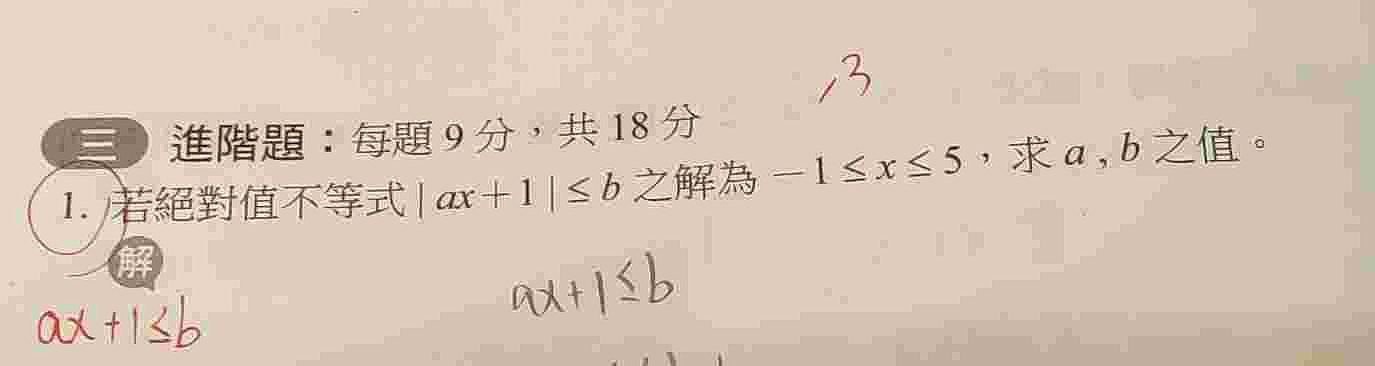 ,3
三 進階題：每題 9 分，共 18 分
1. 若絕對值不等式 | ax + 1 | ≤ b 之解為 −1 ≤ x ≤ 5，求 a , b 之值。
解
ax+1≤b
ax+1≤b